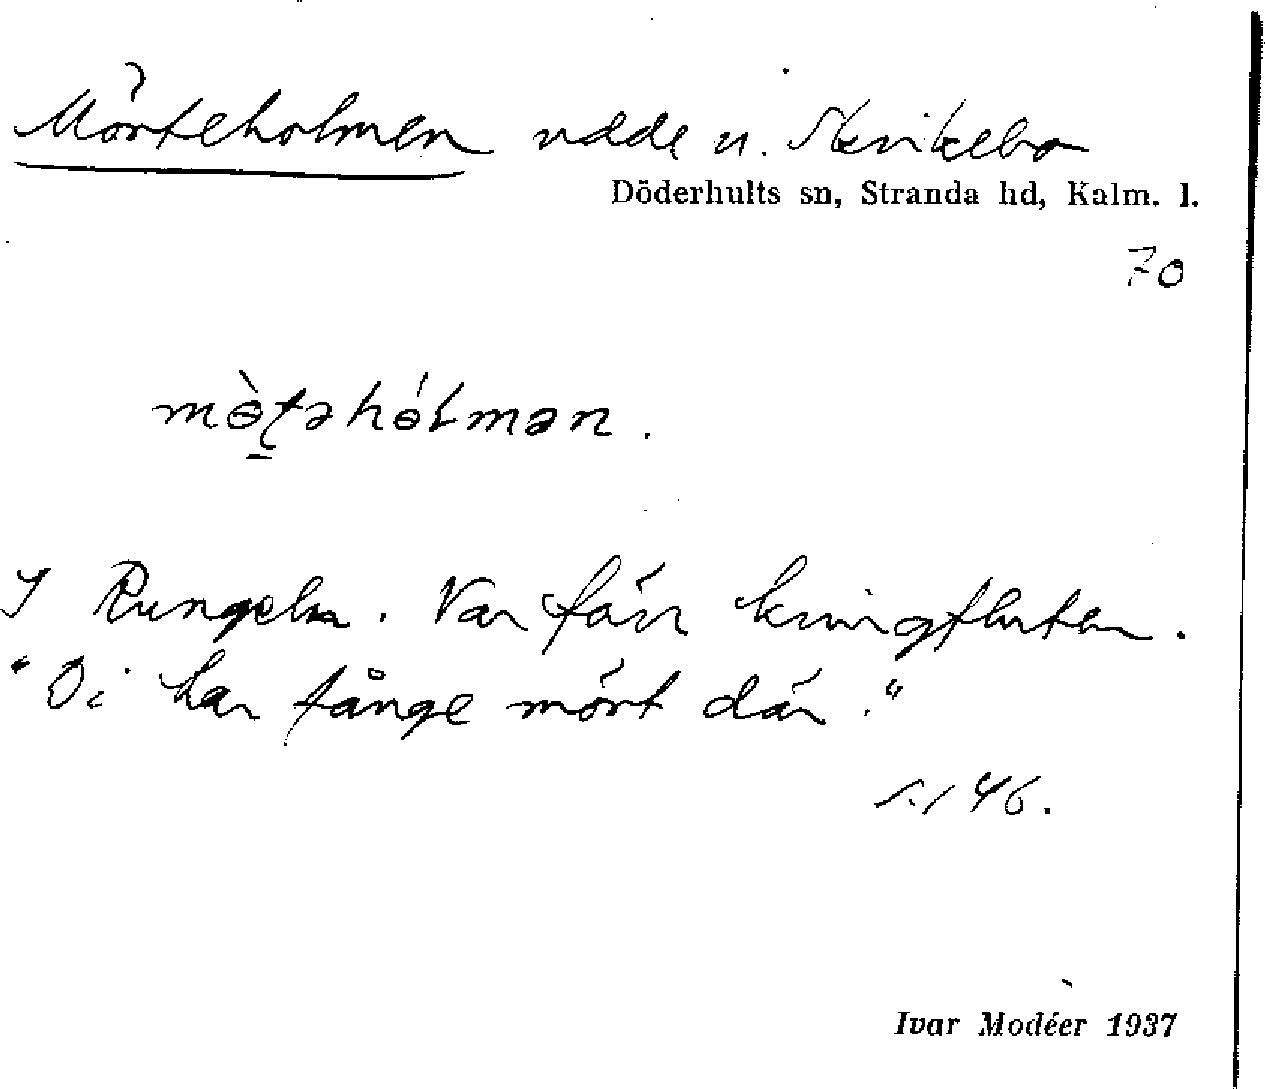 Mörteholmen udde u. Skrikebo
Döderhults sn, Stranda hd, Kalm. l.
70
mè̱ʈəhélmən.
I Rungeln. Var förr kringfluten.
"Di har fånge mört där."
s. 146.
Ivar Modéer 1937